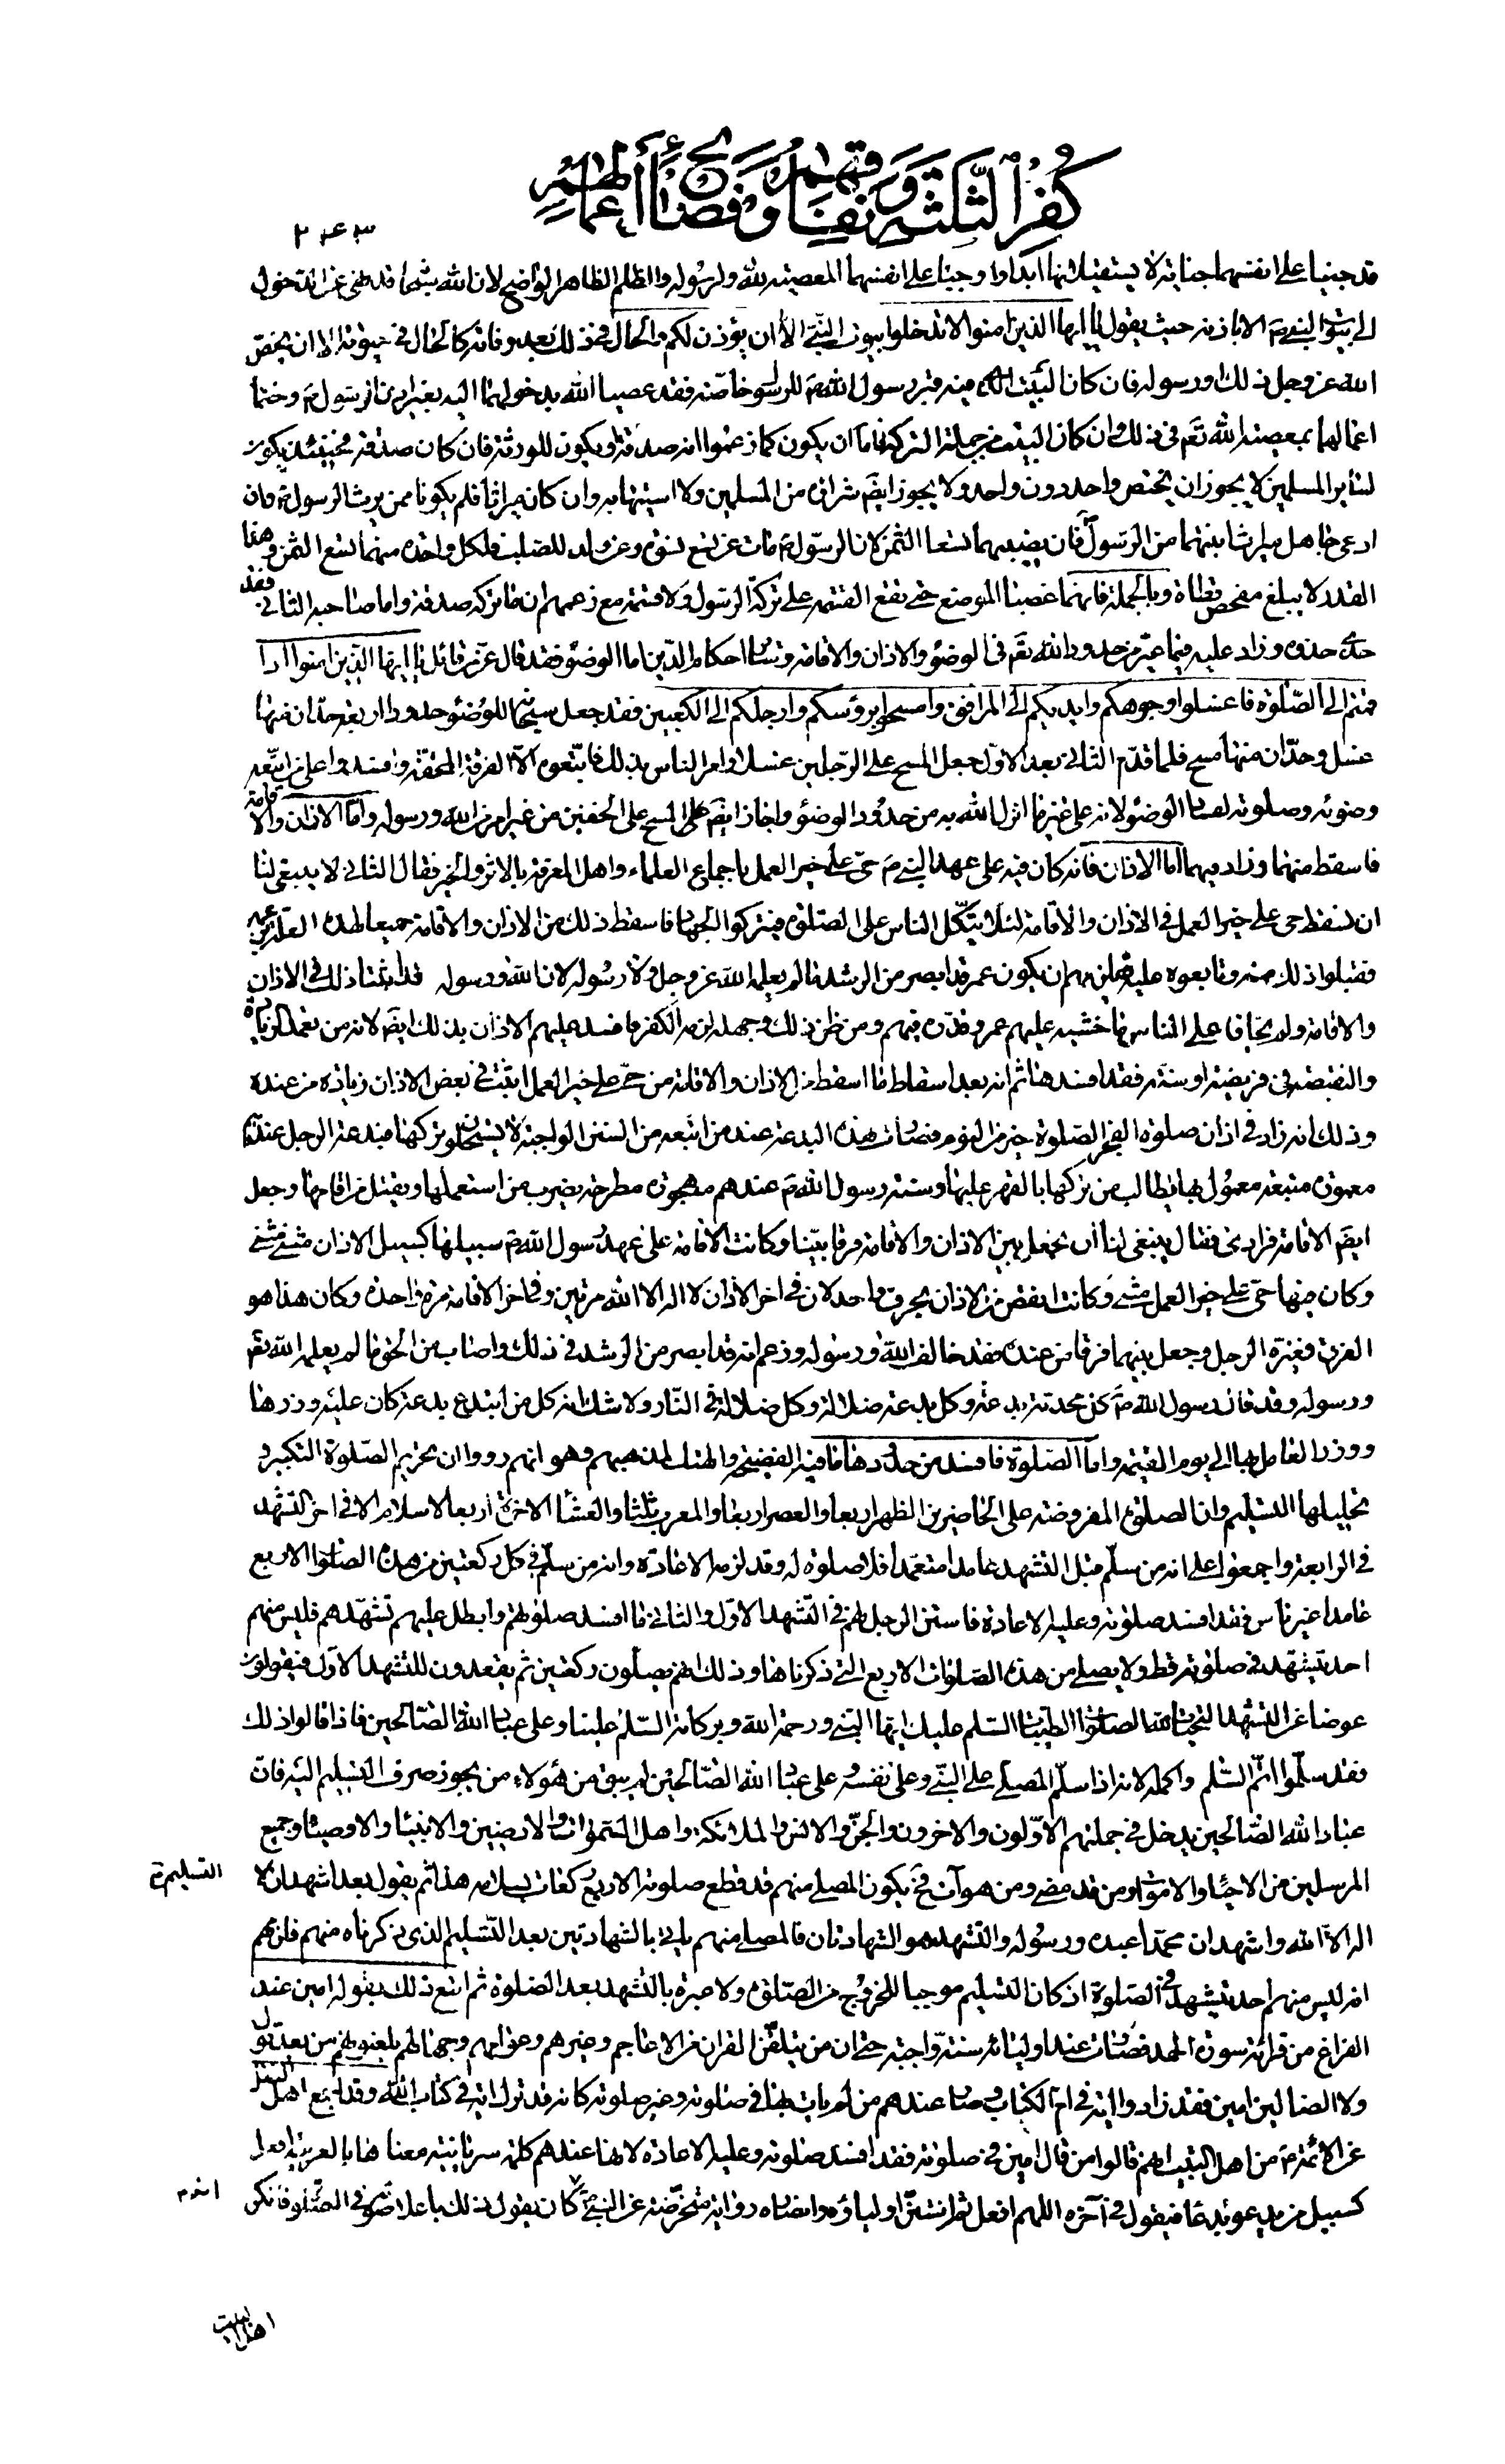 كفر الثلثة ونفاقهم وفضائح أعمالهم
٢٤٣
قد جنيا على انفسهما جناية لا يستقيلانها ابدا واوجبا على انفسهما المعصية لله ولرسوله والظلم الظاهر الواضح لان الله سبحانه قد نهى عن الدخول
الى بيوت النبي ص الا باذنه حيث يقول يا ايها الذين امنوا لا تدخلوا بيوت النبي الا ان يؤذن لكم والحال في ذلك بعد وفاته كالحال في حيوته الا ان يخص
الله عز وجل ذلك ورسوله فان كان البيت الذي فيه قبر رسول الله ص للرسول خاصة فقد عصيا الله بدخولهما اليه بغير اذن الرسول ص وختما
اعمالهما بمعصية الله تع في ذلك وان كان البيت من جملة التركة فاما ان يكون كما زعموا انه صدقة او يكون للورثة فان كان صدقة فحينئذ يكون
لسائر المسلمين لا يجوز ان يختص واحد دون واحد ولا يجوز ايضم شراؤه من المسلمين ولا استيهابه وان كان ميراثا فلم يكونا ممن يرث الرسول ص وان
ادعى جاهل ميراث ابنتهما من الرسول ص فان نصيبهما تسعا الثمن لان الرسول ص مات عن تسع نسوة وعن ولد للصلب فلكل واحدة منهما تسع الثمن وهذا
القدر لا يبلغ مفحص قطاة وبالجملة فانهما غصبا الموضع حتى تقع القسمة على تركة الرسول ولا قسمة مع زعمهم ان ما تركه صدقة واما صاحبه الثاني فقد
حذى حذوه وزاد عليه فيما غير من حدود الله تع في الوضوء والاذان والاقامة وسائر احكام الدين اما الوضوء فقد قال عز من قائل يا ايها الذين امنوا اذا
قمتم الى الصلوة فاغسلوا وجوهكم وايديكم الى المرافق وامسحوا برؤسكم وارجلكم الى الكعبين فقد جعل سبحانه للوضوء حدودا اربعة حدان منها
غسل وحدان منها مسح فلما قدم الثاني بعد الاول جعل المسح على الرجلين غسلا وامر الناس بذلك فاتبعوه الا الفرقة المحقة وافسد على من اتبعه
وضوئه وصلوته لفساد الوضوء لانه على غير ما انزل الله به من حدود الوضوء واجاز ايضم المسح على الخفين من غير امر من الله ورسوله واما الاذان والاقامة
فاسقط منهما وزاد فيهما اما الاذان فانه كان فيه على عهد النبي ص حي على خير العمل باجماع العلماء واهل المعرفة بالاثر والخبر فقال الثاني لا ينبغي لنا
ان نسقط حي على خير العمل في الاذان والاقامة لئلا يتكل الناس على الصلوة فيتركوا الجهاد فاسقط ذلك من الاذان والاقامة جميعا لهذه العلة بزعمه
فقبلوا ذلك منه وتابعوه عليه فيلزمهم ان يكون عمر قد ابصر من الرشد ما لم يعلمه الله عز وجل ولا رسوله لان الله ورسوله قد اثبتا ذلك في الاذان
والاقامة ولم يخافا على الناس ما خشيه عليهم عمر وقدره فيهم ومن ظن ذلك وجهله لزمه الكفر فافسد عليهم الاذان بذلك ايضم لانه من تعمد الزيادة
والنقيصة في فريضة او سنة فقد افسدها ثم انه بعد اسقاط ما اسقط من الاذان والاقامة من حي على خير العمل اثبت في بعض الاذان زيادة من عنده
وذلك انه زاد في اذان صلوة الفجر الصلوة خير من النوم فصارت هذه البدعة عند من اتبعه من السنن الواجبة لا يستحلون تركها فبدعة الرجل عندهم
معمورة متبعة معمول بها يطالب من تركها بالقهر عليها وسنة رسول الله ص عندهم مهجورة مطرحة يضرب من استعملها ويقتل من اقامها وجعل
ايضم الاقامة فرادى فقال ينبغي لنا ان نجعل بين الاذان والاقامة فرقا بينا وكانت الاقامة على عهد رسول الله ص سبيلها كسبيل الاذان مثنى مثنى
وكان فيها حي على خير العمل مثنى وكانت انقص من الاذان بحرف واحد لان في اخر الاذان لا اله الا الله مرتين وفي اخر الاقامة مرة واحدة وكان هذا هو
الفرق فغيره الرجل وجعل بينهما فرقا من عنده فقد خالف الله ورسوله وزعم انه قد ابصر من الرشد في ذلك واصاب من الحق ما لم يعلمه الله تع
ورسوله وقد قال رسول الله ص كل محدثة بدعة وكل بدعة ضلالة وكل ضلالة في النار ولا شك انه كل من ابتدع بدعة كان عليه وزرها
ووزر العامل بها الى يوم القيمة واما الصلوة فافسد من حدودها ما فيه الفضيحة والهتك لمذهبهم وهو انهم رووا ان تحريم الصلوة التكبير و
تحليلها التسليم وان الصلوة المفروضة على الحاضرين الظهر اربعا والعصر اربعا والمغرب ثلثا والعشاء الاخرة اربعا لا سلام الا في اخر التشهد
في الرابعة واجمعوا على انه من سلم قبل التشهد عامدا متعمدا فلا صلوة له وقد لزمه الاعادة وانه من سلم في كل ركعتين من هذه الصلوات الاربع
عامدا غير ناس فقد افسد صلوته وعليه الاعادة فاستن الرجل لهم في التشهد الاول والثاني ما افسد صلوتهم وابطل عليهم تشهدهم فليس منهم
احد يتشهد في صلوته قط ولا يصلي من هذه الصلوات الاربع التي ذكرناها وذلك انهم يصلون ركعتين ثم يقعدون للتشهد الاول فيقولون
عوضا عن التشهد التحيات لله الصلوات الطيبات السلم عليك ايها النبي ورحمة الله وبركاته السلم علينا وعلى عباد الله الصالحين فاذا قالوا ذلك
فقد سلموا اتم السلم واكمله لانه اذا سلم المصلي على النبي وعلى نفسه وعلى عباد الله الصالحين لم يبق من هؤلاء من يجوز صرف التسليم اليه فان
عباد الله الصالحين يدخل في جملتهم الاولون والاخرون والجن والانس والملائكة واهل السموات والارضين والانبياء والاوصياء وجميع
المرسلين من الاحياء والاموات ومن قد مضى ومن هو آت فح يكون المصلي منهم قد قطع صلوته الاربع ركعات بسلامه هذا ثم يقول بعد اشهد ان لا
التسليم
اله الا الله واشهد ان محمدا عبده ورسوله والتشهد هو الشهادتان فالمصلي منهم ياتي بالشهادتين بعد التسليم الذي ذكرناه منهم فلزمهم
انه ليس منهم احد يتشهد في الصلوة اذ كان التسليم موجبا للخروج من الصلوة ولا عبرة بالتشهد بعد الصلوة ثم اتبع ذلك بقوله امين عند
الفراغ من قراءة سورة الحمد فصارت عند اوليائه سنة واجبة حتى ان من يتلقن القران من الاعاجم وغيرهم وعوامهم وجهالهم يلقنونهم من بعد قول
ولا الضالين امين فقد زادوا اية في ام الكتاب وصار عندهم من لم يات بها في صلوته وغير صلوته كانه قد ترك اية في كتاب الله وقد اجمع اهل النقل
عن الائمة ص من اهل البيت انهم قالوا من قال امين في صلوته فقد افسد صلوته وعليه الاعادة لانها عندهم كلمة سريانية معناها بالعربية افعل
كسبيل من يدعو بدعاء فيقول في آخره اللهم افعل ثم استن اولياؤه وانصاره رواية متخرصة عن النبي ص كان يقول ذلك باعلى صوته في الصلوة فانكر
اهل البيت